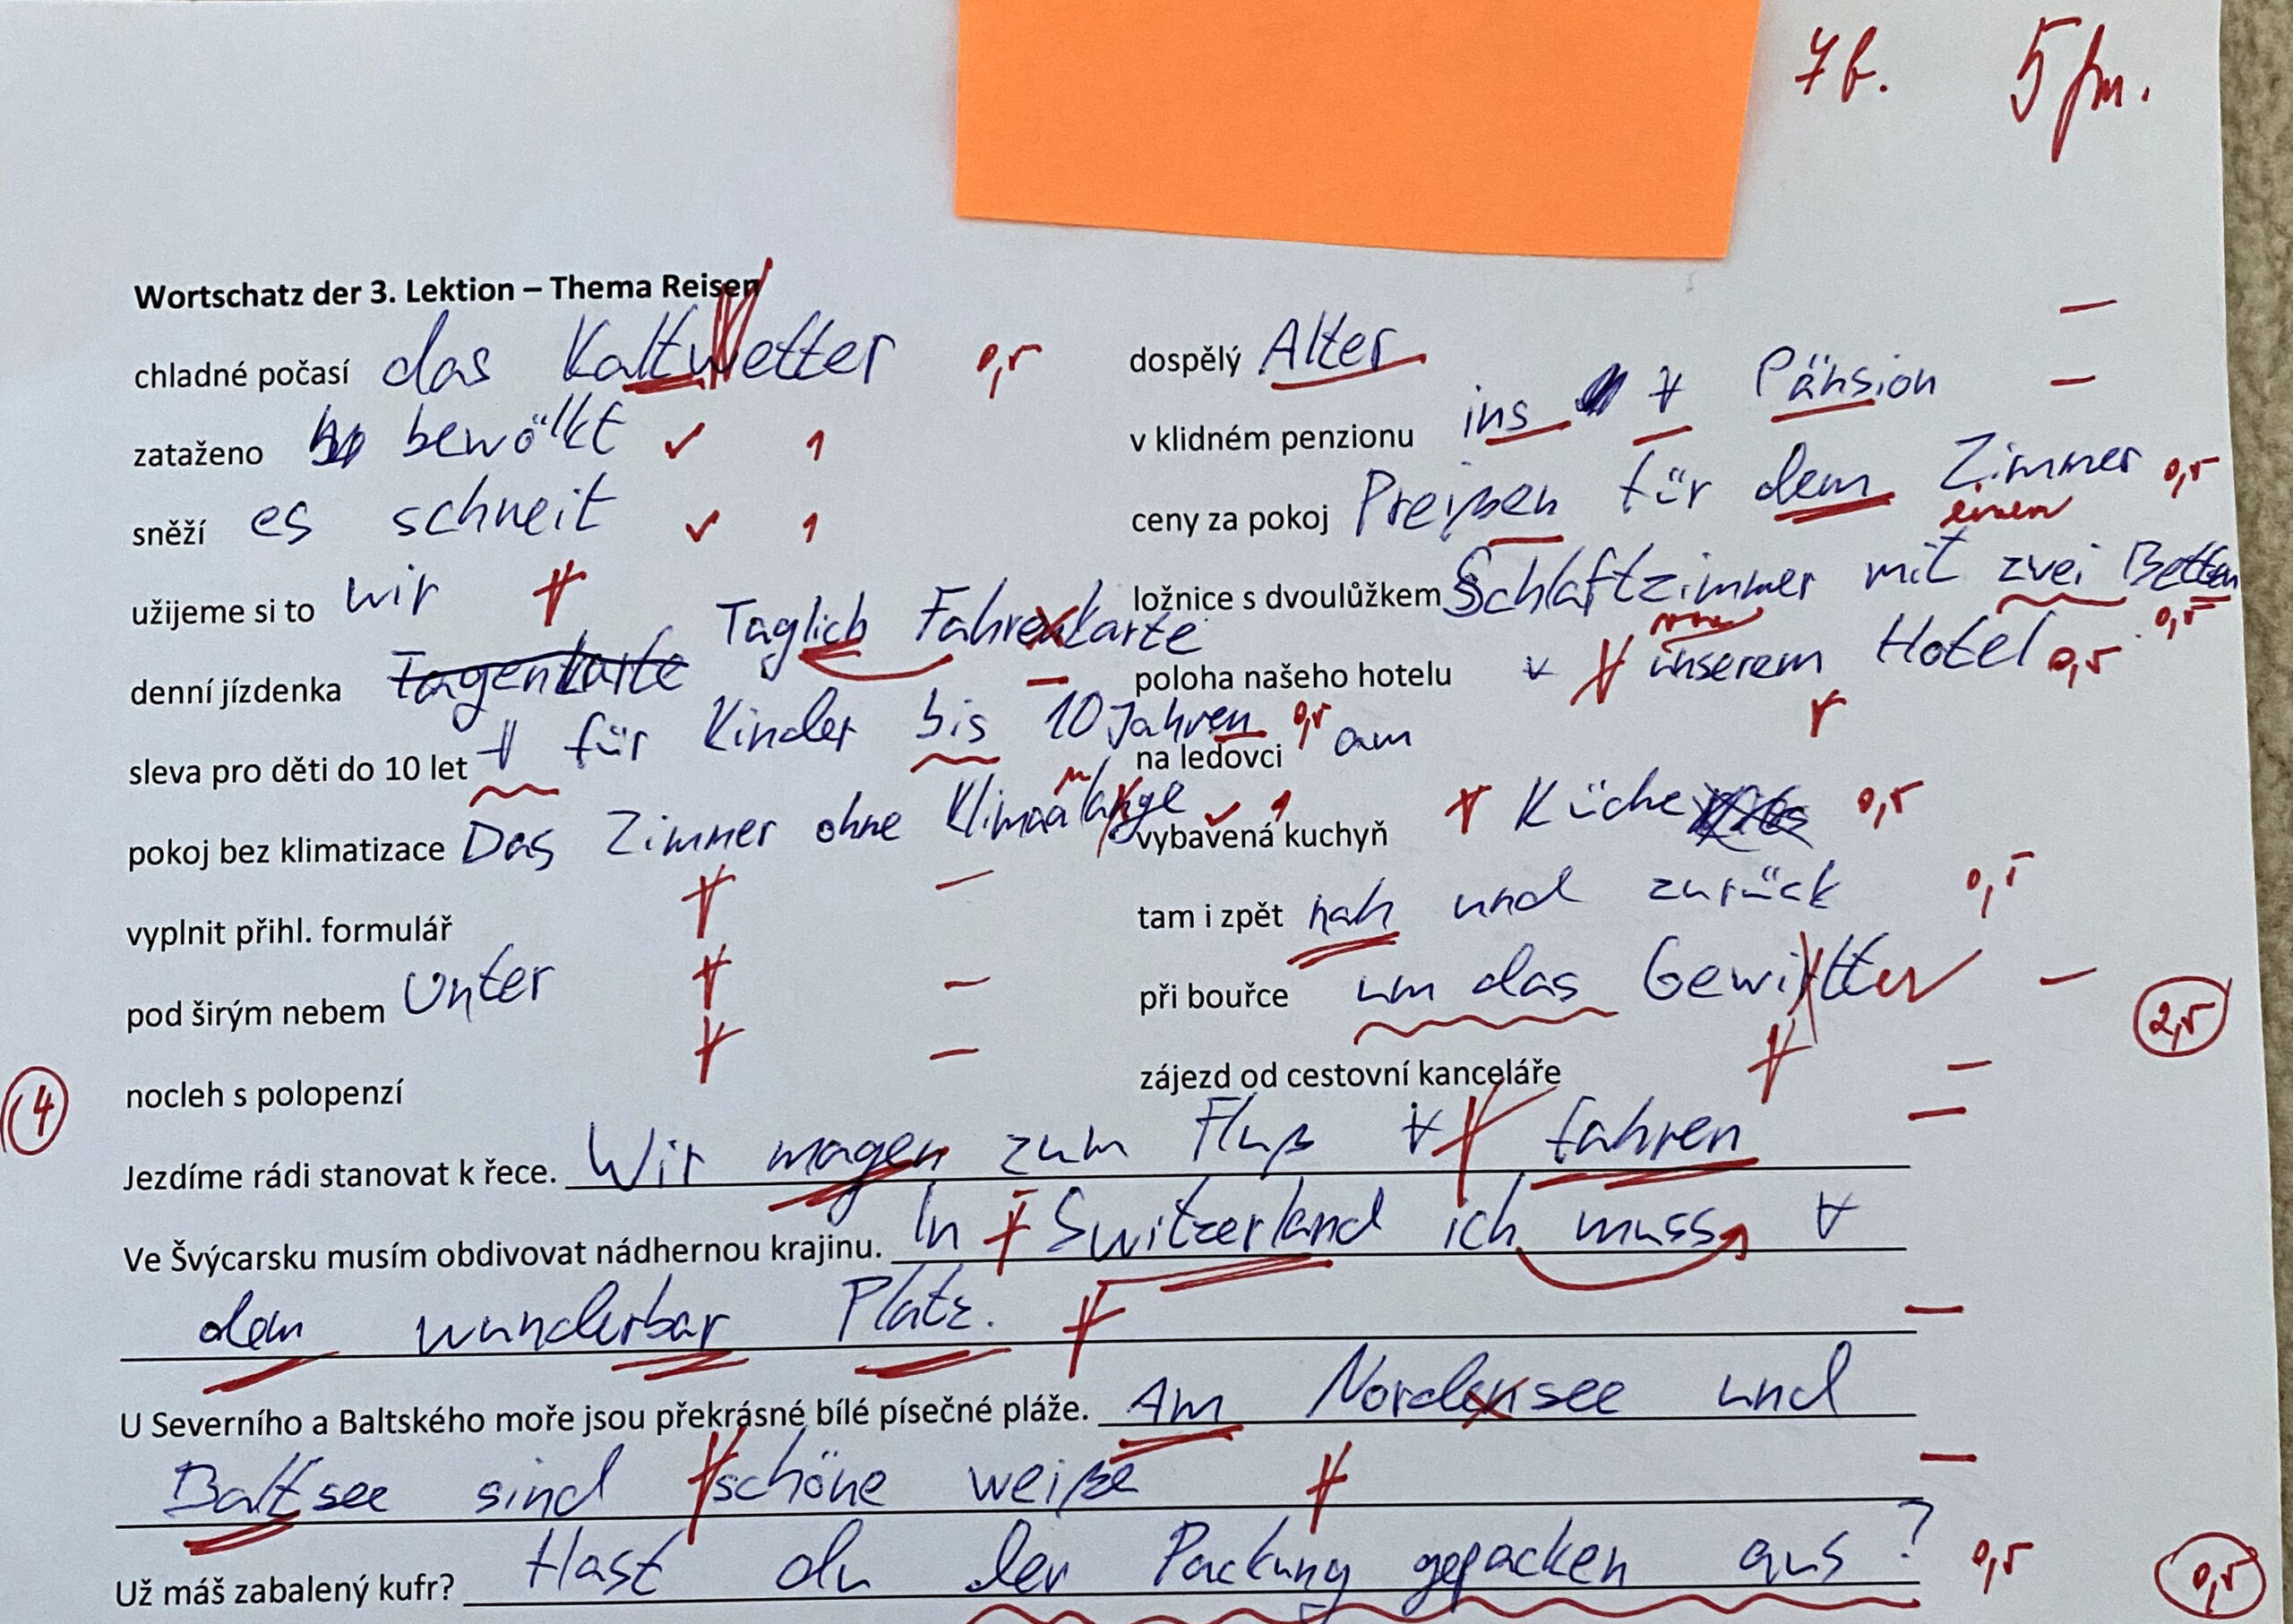 7b. 5 
Wortschatz der 3. Lektion – Thema Reisen
chladné počasí das Kaltwetter 0,5
zataženo bewölkt ✓ 1
sněží es schneit ✓ 1
užijeme si to wir
denní jízdenka Tagenkarte Taglich Fahrenkarte
sleva pro děti do 10 let für Kinder bis 10 Jahren 0,5
pokoj bez klimatizace Das Zimmer ohne ✓ 1
vyplnit přihl. formulář –
pod širým nebem Unter –
nocleh s polopenzí –
4
dospělý Alter –
v klidném penzionu ins Pänsion –
ceny za pokoj Preißen für dem Zimmer 0,5
einen
ložnice s dvoulůžkem Schlaftzimmer mit zvei Betten 0,5
poloha našeho hotelu unserem Hotel 0,5
na ledovci am
vybavená kuchyň Küche 0,5
tam i zpět nah und zurück 0,5
při bouřce um das –
2,5
zájezd od cestovní kanceláře –
Jezdíme rádi stanovat k řece. Wir magen zum Fluß fahren –
Ve Švýcarsku musím obdivovat nádhernou krajinu. In Switzerland ich muss
dem wunderbar Platz. –
U Severního a Baltského moře jsou překrásné bílé písečné pláže. Am Nordensee und
Baltsee sind schöne weiße –
Už máš zabalený kufr? Hast du der Packung gepacken aus? 0,5
0,5